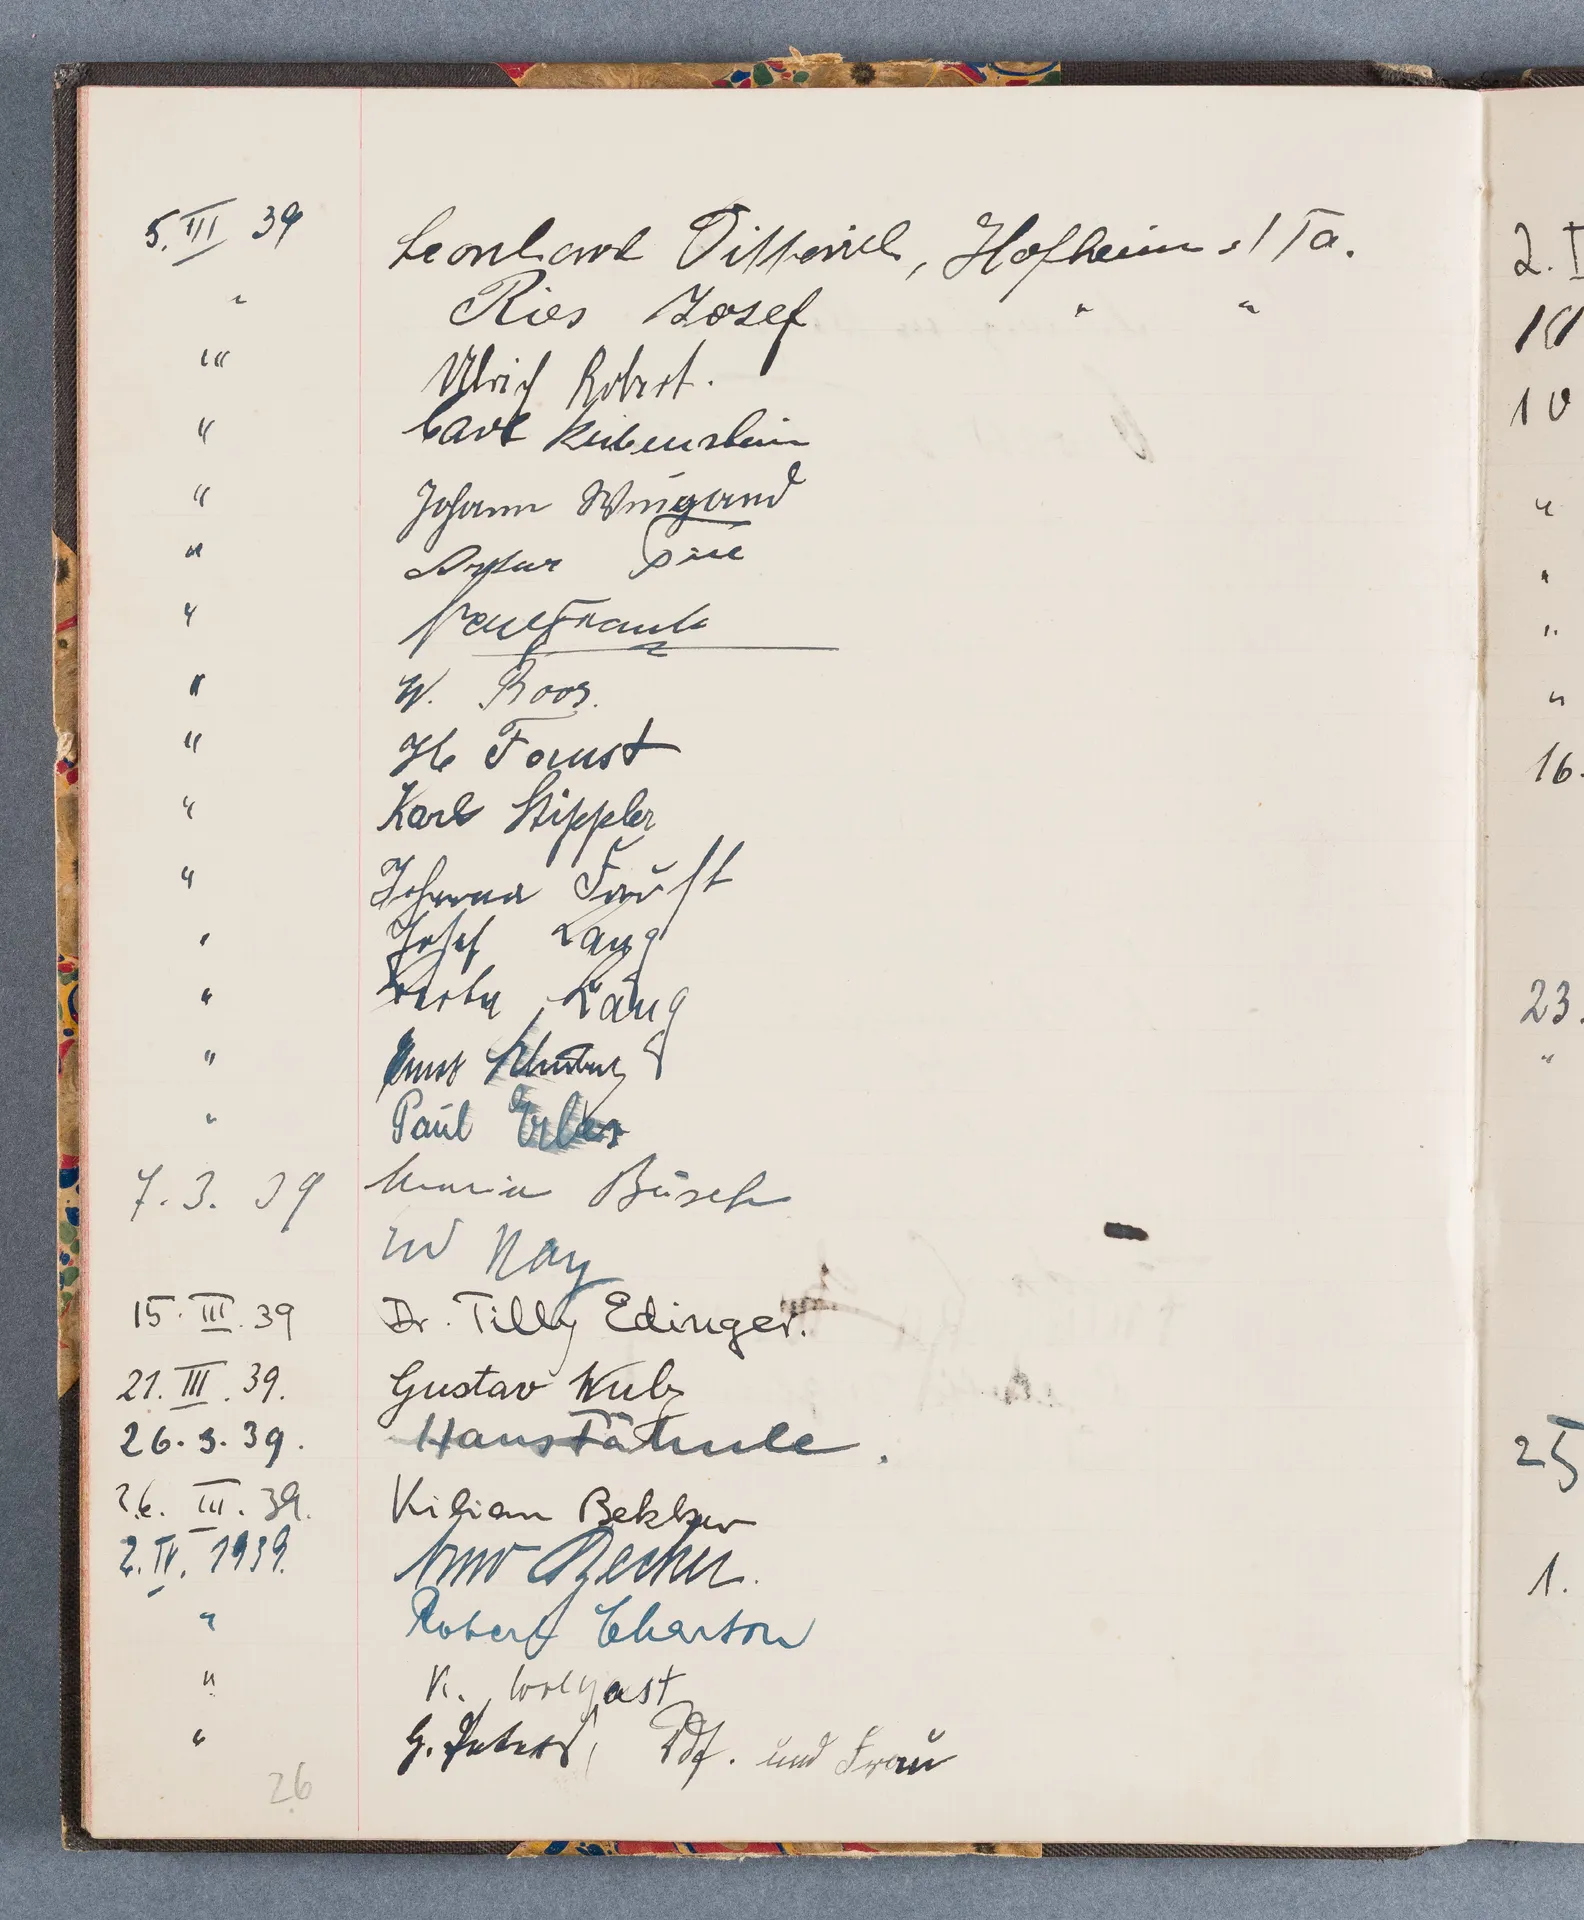 5. III 39 Leonhard Dittrich, Hofheim a/Ta.
" Ries Josef " "
" Ulrich Robert.
" Carl
" Johann Weigand
" Artur
" Paul Frank
" W. Roos.
" H Faust
" Karl Stippler
" Johanna Faust
" Josef Lang
" Lang
" Ernst
" Paul Erler
7. 3. 39 Maria Büsch
EW Nay
15. III. 39 Dr. Tilly Edinger.
21. III. 39. Gustav
26. 3. 39. Hans
26. III. 39. Kilian Bekker
2. IV. 1939. Arno Becker.
" Robert Charton
" K. Wolgast
" G. Peters, und Frau
26
2.
10
10
"
"
"
"
16.
23.
"
25
1.